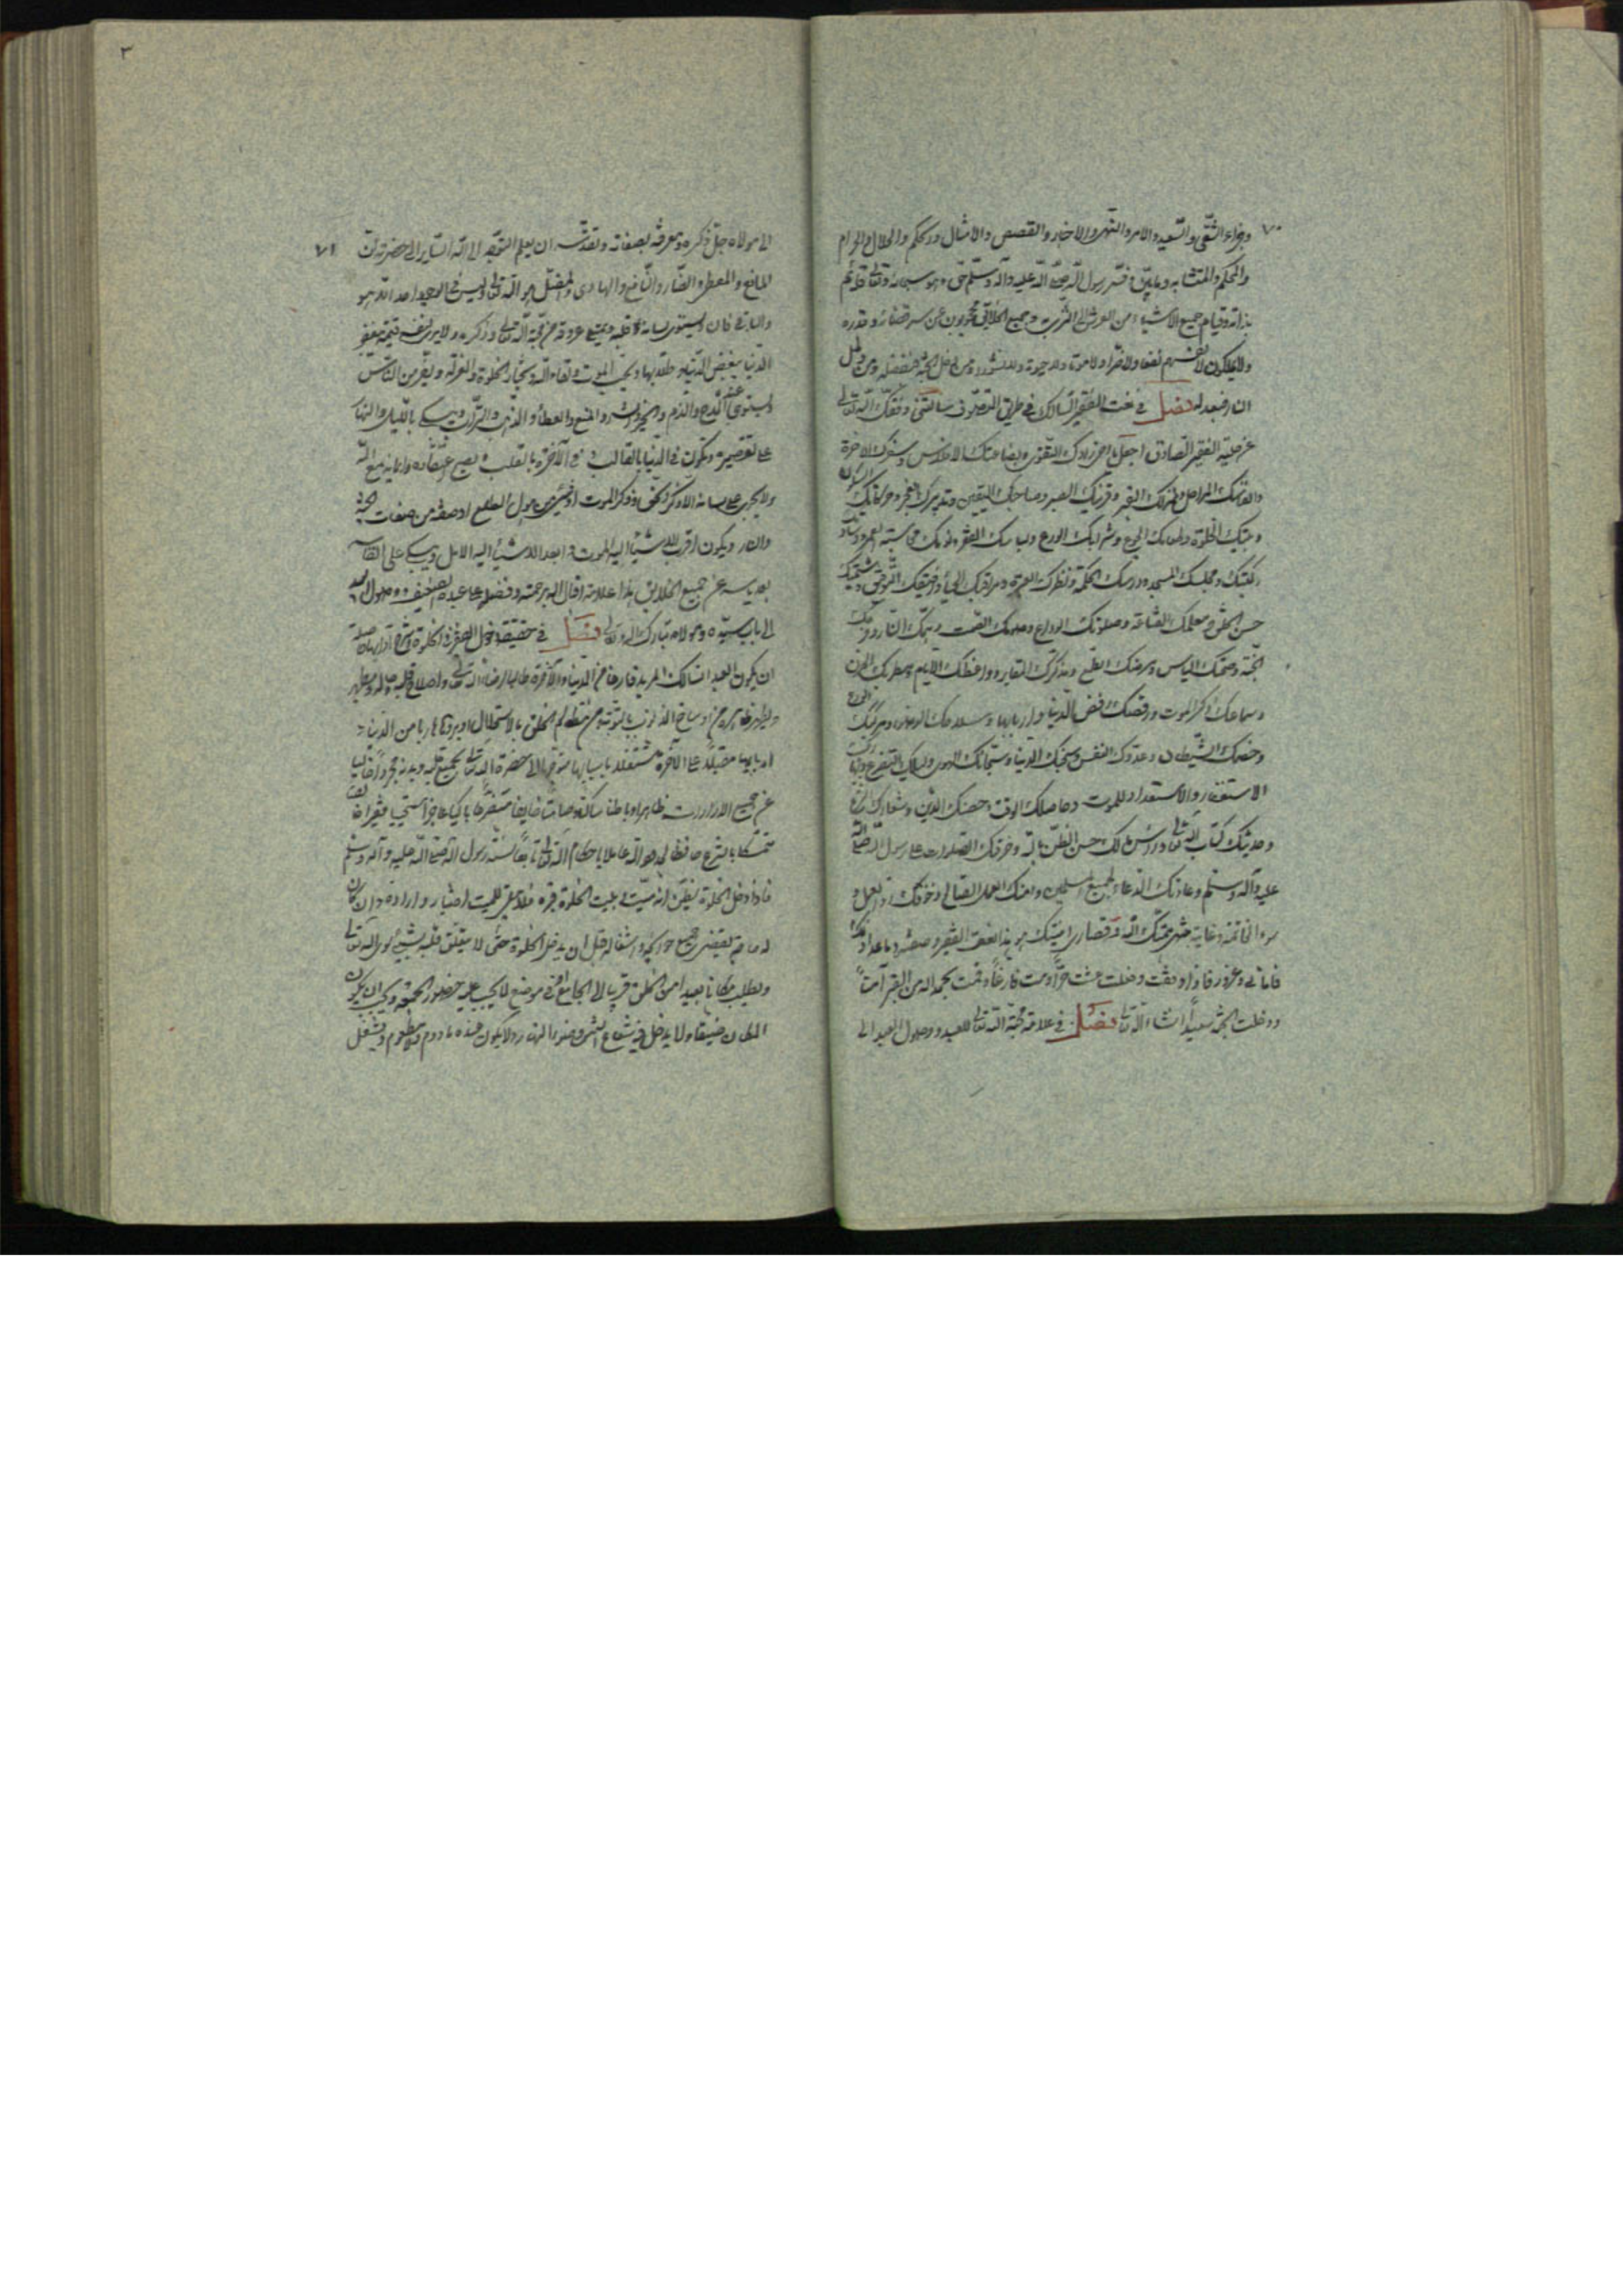 ٧٠
وجزاء الشقى والسعيد والامر والنهى والاخبار والقصص والامثال والحكم والحلال والحرام
والمحكم والمتشابه وما بين وفسر رسول الله صلى الله عليه وآله وسلم حق وهو سبحانه وتعالى قائم
بذاته وقيام جميع الاشياء من العرش الى الثرى به وجميع الخلائق محجوبون عن سر قضائه وقدره
ولا يملكون لانفسهم نفعا ولا ضرا ولا موتا ولا حيوة ولا نشورا ومن دخل الجنة فبفضله ومن دخل
النار فبعدله فصل فى نعت الفقير السالك فى طريق التصوف سالتنى وفقك الله تعالى
عن حلية الفقير الصادق اجعل يا اخى زادك التقوى وبضاعتك الافلاس وسفرك الآخرة
وانفاسك المراحل ومنزلك القبر وقرينك الصبر وصاحبك اليقين وتدبيرك العجز وحركاتك السكون
وبيتك الخلوة وطعامك الجوع وشرابك الورع ولباسك الفقر ونومك محاسبة العمر ووسادتك
ركبتك ومجلسك المسجد ودرسك الحكمة ونظرك العبرة ومراقبك الحياء ورفيقك التوفيق وشيمتك
حسن الخلق ومعلمك القناعة وصلوتك الوداع وصومك الصمت وهمك النار وفرحك
الجنة وصحتك الياس ومرضك الطمع ومذكرك المقابر وواعظك الايام ومطربك الحزن
وسماعك ذكر الموت ورقصك رفض الدنيا واربابها وسلاحك الوضوء ومركبك الورع
وخصمك الشيطان وعدوك النفس وسجنك الدنيا وسجانك الهوى وليلك التضرع ونهارك
الاستغفار والاستعداد للموت وحاصلك الوقت وحصنك الدين وشعارك الشرع
وحديثك كتاب الله تعالى ورأس مالك حسن الظن بالله وحرفتك الصلوات على رسول الله صلى الله
عليه وآله وسلم وعادتك الدعاء لجميع المسلمين العمل الصالح وخوفك
سوء الخاتمة وغاية همتك الله وقصارى امنيتك هو بهذا نعت الفقير وصفته وما عداه
فامانى وغرور فاذا وفقت وفعلت عشت حرا ومت فارغا وقمت بحمد الله من القبر آمنا
ودخلت الجنة سعيدا انشاء الله تعالى فصل فى علامة محبة الله تعالى للعبد ووصول العبد الى
٣
٧١
الى مولاه جل ذكره ومعرفته بصفاته وتقدسه ان يعلم المتوجه الى الله السائر الى حضرته ان
المانع والمعطى والضار والنافع والهادى والمضل هو الله تعالى وليس فى الوجود احد الا هو
والباقى فان ويستوى لسانه وقلبه ويمتلى عروقه من محبة الله تعالى وذكره ولا يرى لنفسه قيمة
الدنيا يبغض الدنيا وطلابها ويحب الموت ولقاء الله ويختار الخلوة والعزلة ويفر من الناس
ويستوى عنده المدح والذم والخير والشر والمنع والعطاء والذهب والتراب ويبكى بالليل والنهار
على تقصيره ويكون فى الدنيا بالقالب وفى الآخرة بالقلب ويصح اعتقاده وايمانه مع الله
ولا يجرى على لسانه الا ذكر الحق او ذكر الموت او شيئ من هول المطلع او صفة من صفات الجنة
والنار ويكون اقرب الاشياء اليه الموت وابعد الاشياء اليه الامل ويبكى على
بعد ياسه عن جميع الخلائق هذا علامة اقبال الله برحمته وفضله على عبده الضعيف ووصول العبد
الى باب سيده ومولاه تبارك وتعالى فصل فى حقيقة دخول الفقير فى الخلوة وشرح آدابها
ان يكون العبد السالك المريد فارغا من الدنيا والآخرة طالبا رضاء الله تعالى واصلاح قلبه
وليطهر ظاهره من اوساخ الذنوب بالتوبة ومن مظالم الخلق بالاستحلال ويكون هاربا من الدنيا و
اربابها مقبلا على الآخرة مشتغلا باسبابها متوجها الى حضرة الله تعالى بجميع قلبه وبدنه مجردا خاليا
عن جميع الارادات ظاهرا وباطنا ساكتا صامتا خايفا متضرعا باكيا عاجزا مستحييا فقيرا
متمسكا بالشرع حافظا لحدود الله عاملا باحكام الله تعالى تابعا لسنة رسول الله صلى الله عليه وآله وسلم
فاذا دخل الخلوة يظن انه ميت وبيت الخلوة قبره فلا يبقى للميت اختيار وارادة وان كان
له حاجة يقضى جميع حوائجه واشغاله قبل ان يدخل الخلوة حتى لا يتعلق قلبه بشيئ سوى الله تعالى
ويطلب مكانا بعيدا من الخلق قريبا الى الجامع او فى موضع لا يجب عليه حضور الجمعة ويجب ان يكون
المكان ضيقا ولا يدخل فيه شعاع الشمس وضوء النهار ولا يكون عنده